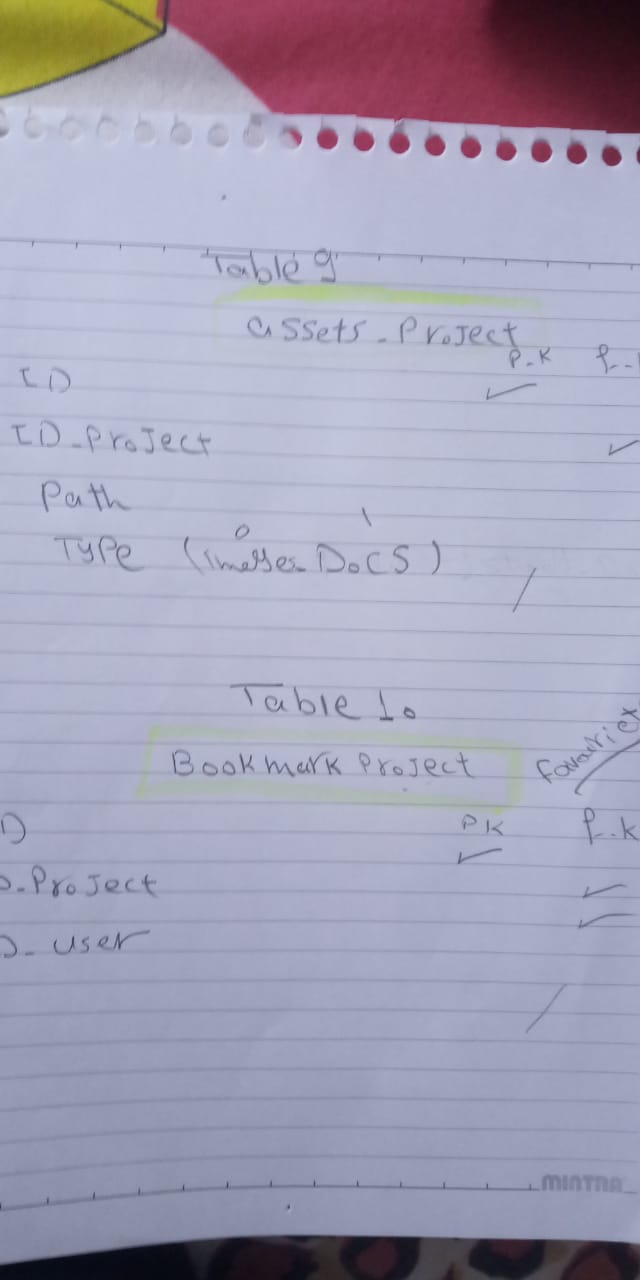 Table 9
assets_Project
P-K f-
ID ✓
ID_Project ✓
Path
0 1
TYPE (images_DOCS)
Table 10
Bookmark Project Favorites
PK f-k
D ✓
D_Project ✓
D_user ✓
MINTRA